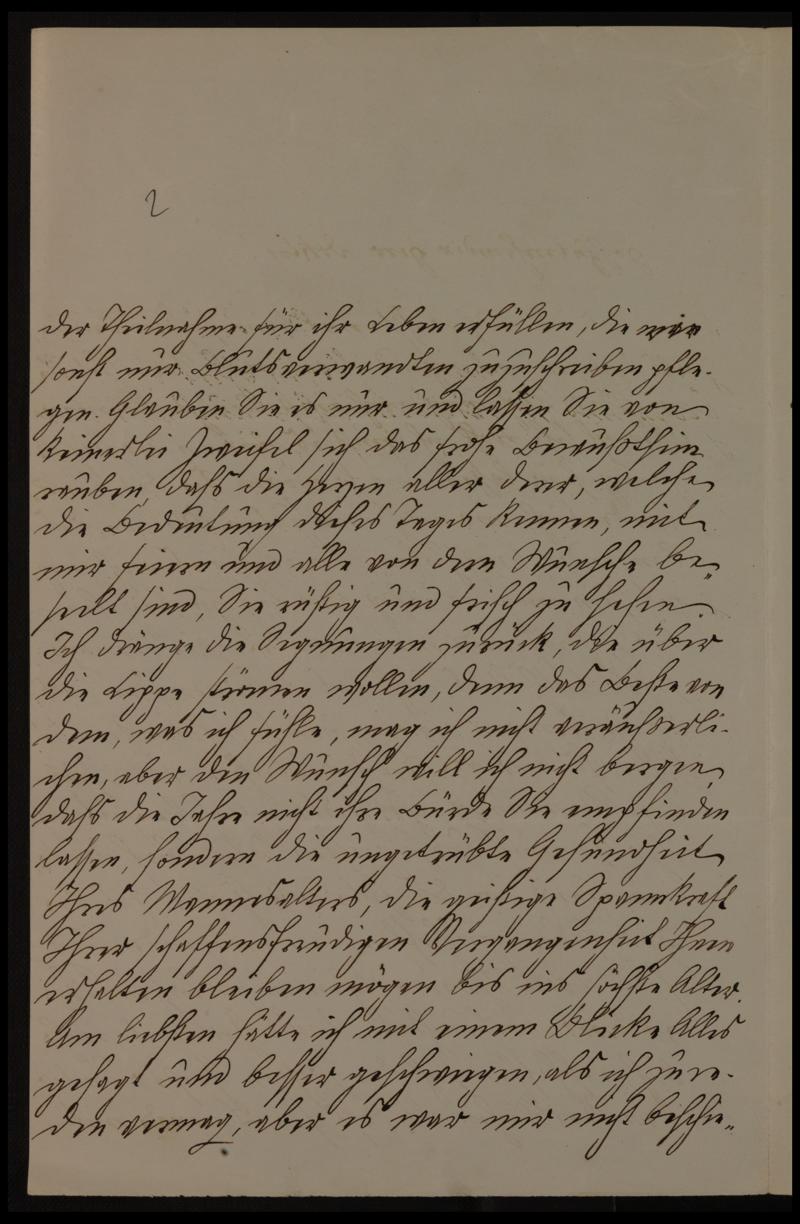 2
der Theilnahme für ihr Leben erfüllen, die wir
sonst nur Blutsverwandten zuzuschreiben pfle-
gen. Glauben Sie es nur und lassen Sie von
keinerlei Zweifel sich das frohe Bewußtsein
rauben, dass die Herzen aller derer, welche
die Bedeutung dieses Tages kennen, mit
mir feiern und alle von dem Wunsche be-
seelt sind, Sie rüstig und frisch zu sehen.
Ich dränge die Segnungen zurück, die über
die Lippe strömen wollen, denn das Beste von
dem, was ich fühle, mag ich nicht veräußerli-
chen, aber den Wunsch will ich nicht bergen,
dass die Jahre nicht ihre Bürde Sie empfinden
lassen, sondern die ungetrübte Gesundheit
Ihres Mannesalters, die geistige Spannkraft
Ihrer schaffensfreudigen Vergangenheit Ihnen
erhalten bleiben mögen bis ins höchste Alter.
Am liebsten hätte ich mit einem Blicke Alles
gesagt und besser geschwiegen, als ich zu re-
den vermag, aber es war mir nicht beschie-